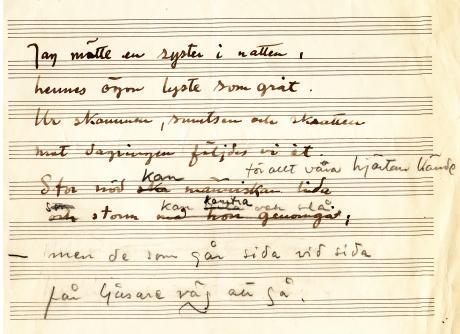 Jag mötte en syster i natten,
hennes ögon lyste som gråt.
Ur skammen, smutsen och skratten
mot dagningen följdes vi åt.
för att våra hjärtan kände
Stor nöd ska kan människan lida
och storm kan hon genomgå;
— men de som går sida vid sida
får ljusare väg att gå.